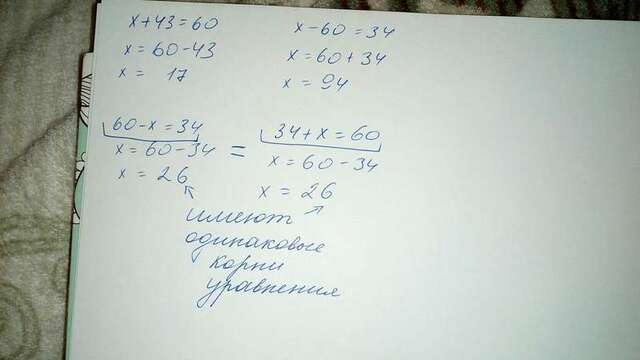 x+43=60
x=60-43
x= 17
x-60=34
x=60+34
x=94
60-x=34
x=60-34
x=26
=
34+x=60
x=60-34
x=26
имеют
одинаковые
корни
уравнения